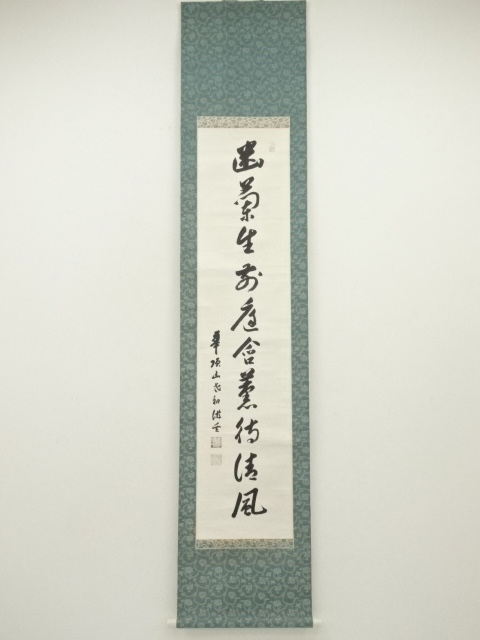 幽蘭生前庭含薫待清風
華頂山老衲